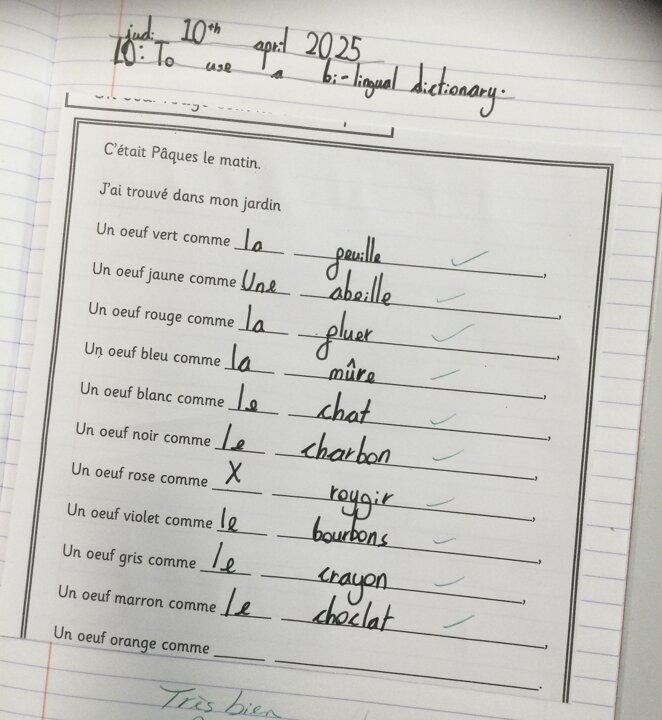 judi 10th april 2025
LO: To use a bi-lingual dictionary.
C'était Pâques le matin.
J'ai trouvé dans mon jardin
Un oeuf vert comme la geuille,
Un oeuf jaune comme Une abeille,
Un oeuf rouge comme la gluer,
Un oeuf bleu comme la mûre,
Un oeuf blanc comme le chat,
Un oeuf noir comme le charbon,
Un oeuf rose comme X roygir,
Un oeuf violet comme le bourbons,
Un oeuf gris comme le crayon,
Un oeuf marron comme le choclat,
Un oeuf orange comme .
Très bien